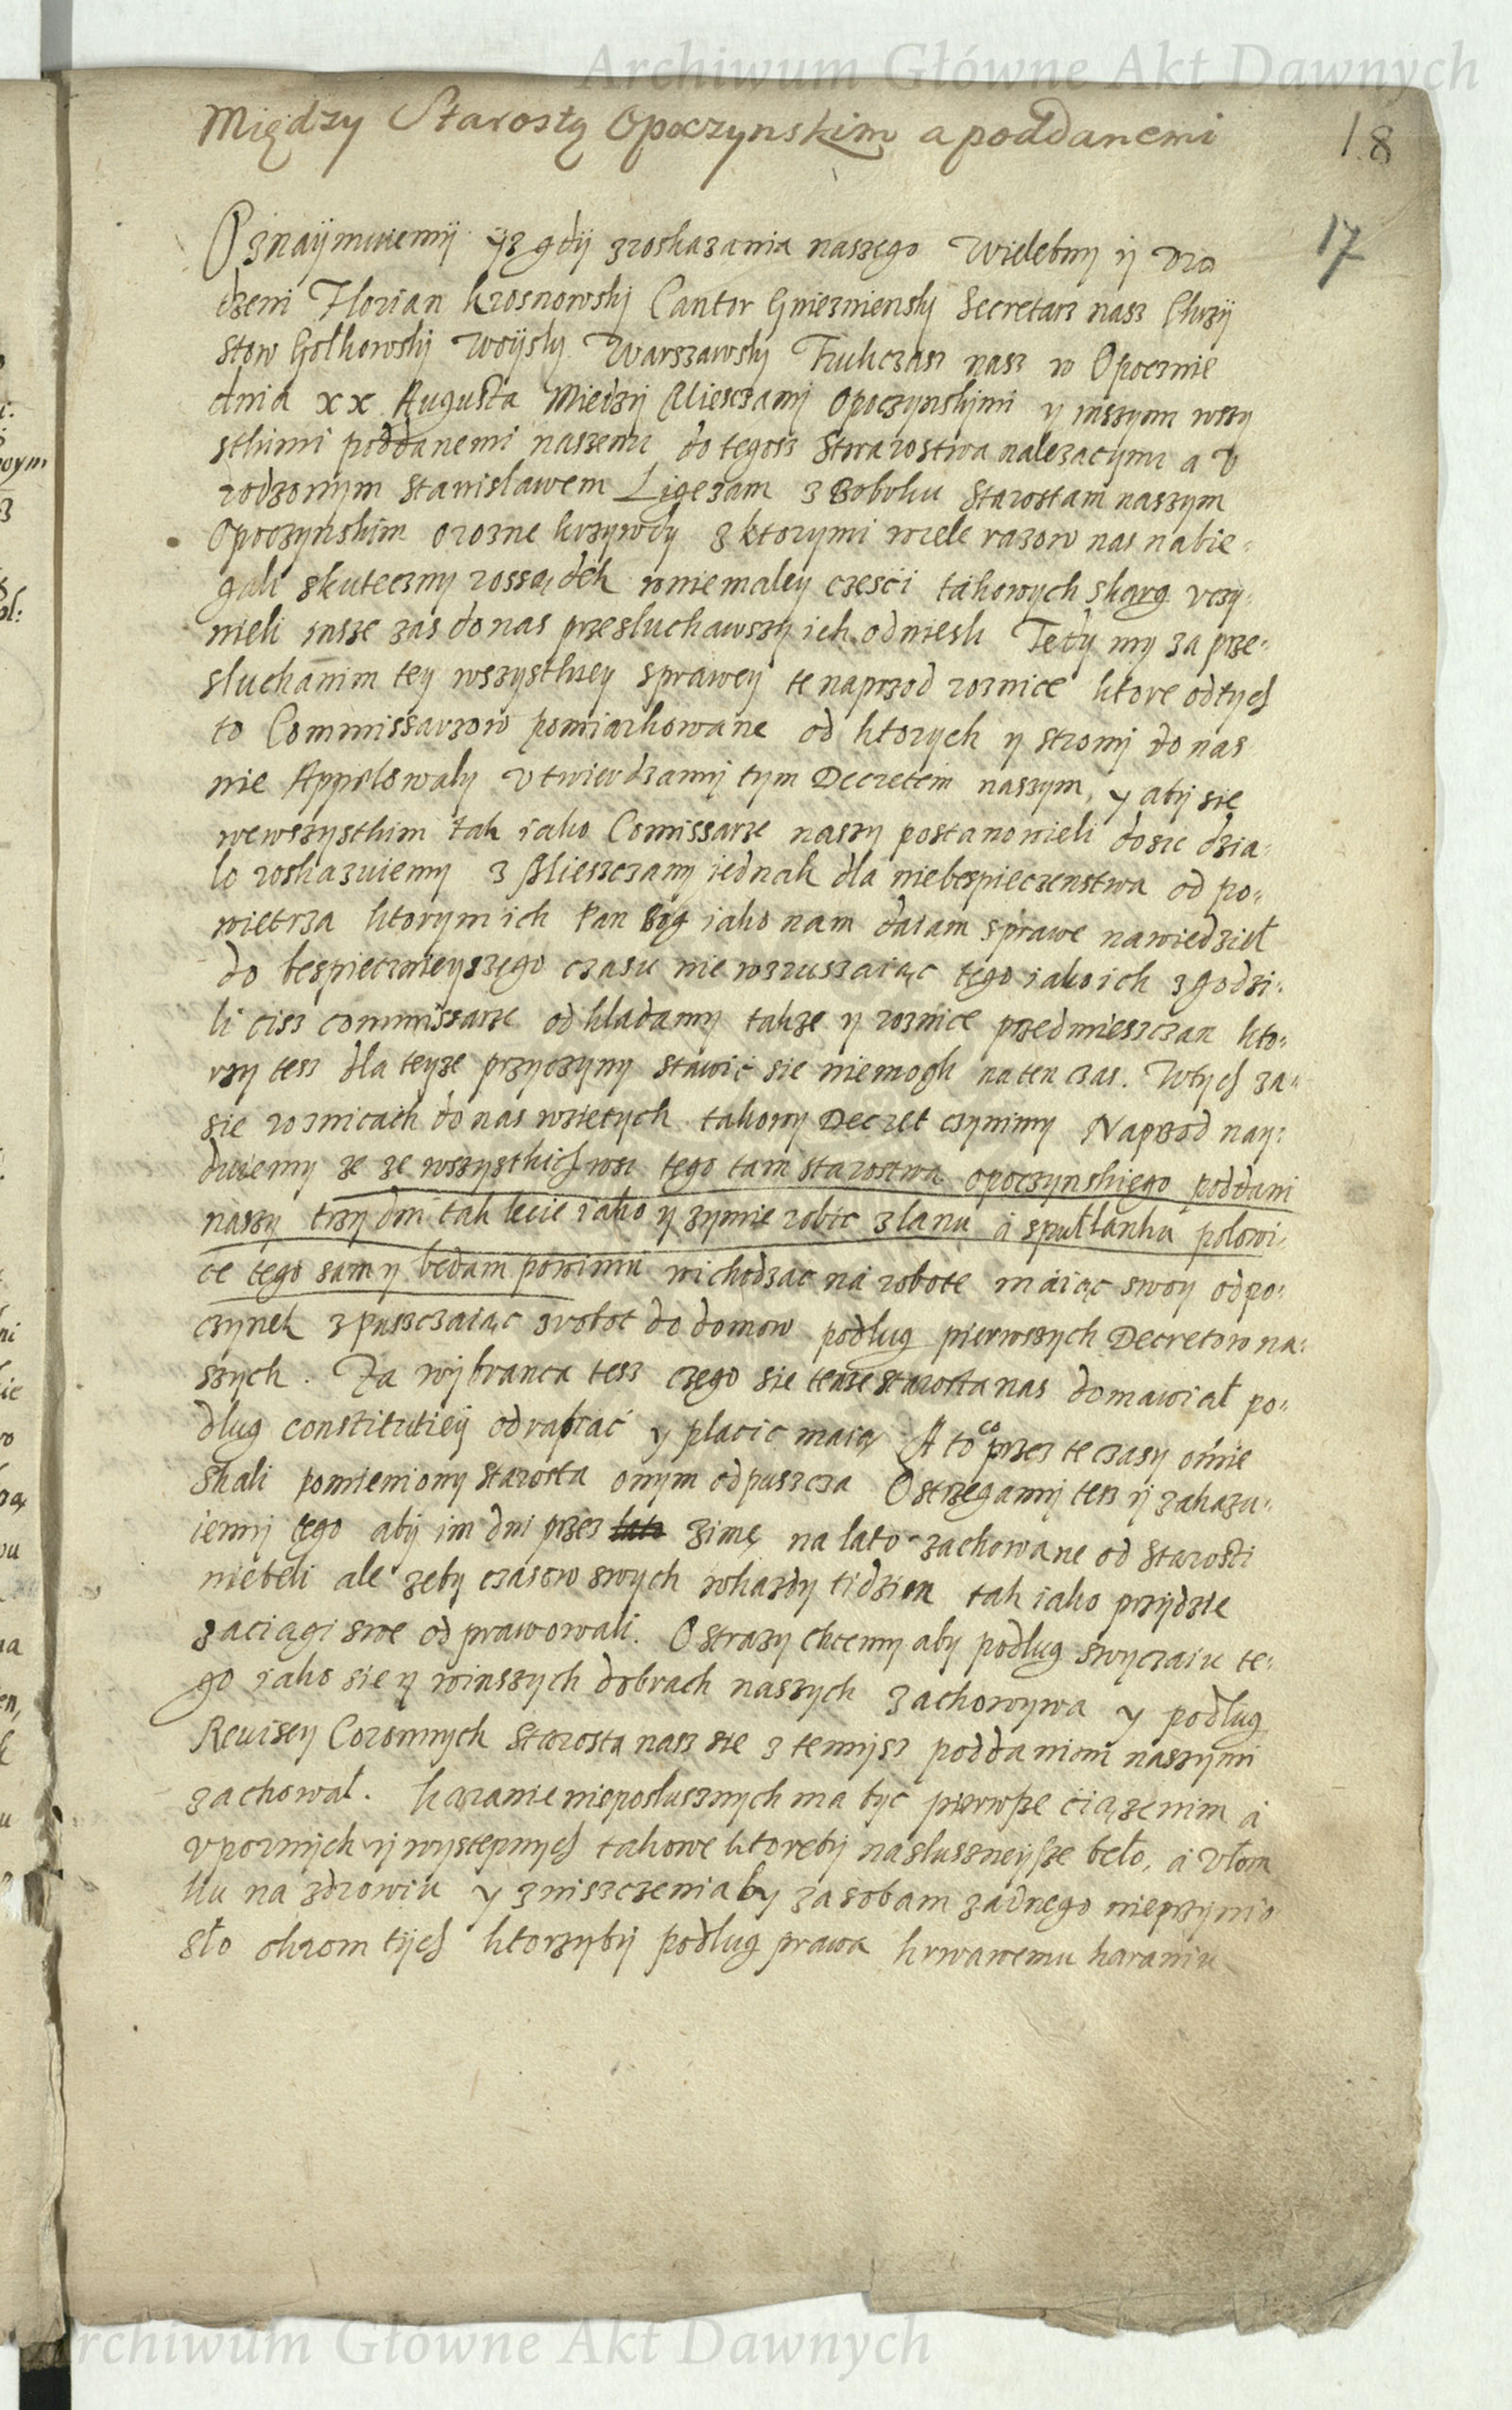 Archiwum Główne Akt Dawnych
Między Starostą Opoczynskim a poddanemi
18
17
Oznaÿmuiemÿ ÿz gdÿ zroskazania naszego Wielebny ÿ Vro
dzeni Florian Krosnowskj Cantor Gnieznienskj Secretarz nasz Chrzÿ
stow Golkowskj Woÿskj Warszawskj Tukczasz nasz w Opocznie
dnia xx Augusta Miedzÿ Miesczamj Opoczynskjmi y inszym wszy
stkimi poddanemi naszemi do tegosz Starostwa nalezacymi a V
rodzonym Stanislawem Ligezam z Boboku Starostam naszym
Opoczynskim orozne krzywdy z ktorymi wiele razow nas nabie-
gali skuteczny rossądek wniemaley czesci takowych skarg vczy-
nieli insze zas do nas przesluchawszy ich odniesli Tedy my za prze-
sluchanim tey wszystkiey sprawey te naprzod roznice ktore od tych
to Commissarzow pomiarkowane od ktorych y stronj do nas
nie Appellowaly vtwierdzamj tym Decretem naszym, y abÿ sie
wewszystkim tak iako Comissarze naszy postanowieli dosic dzia-
lo roskazuiemy z Mieszczany iednak dla niebespieczenstwa od po-
wietrza ktorym ich Pan Bog iako nam daiam sprawe nawiedzieł
do bespiecznieyszego czasu nie wzruszaiąc tego iako ich zgodzi-
li cisz commissarze odkladamy takze y roznice przedmieszczan kto-
rzy tesz dla teyze przyczyny stawic sie niemogli na ten czas. Wtych za-
sie roznicach do nas wzietych takowy Decret czynimy Naprzod nay-
duiemy ze ze wszystkich wsi tego tam starostwa opoczynskiego poddani
naszy trzy dni tak lecie iako y zymie robic z lanu a spułlanku polowi-
ce tego samy bedam powinni wichodzac na robote maiąc swoy odpo-
czynek zpuszczaiąc zrobot do domow podlug pierwszych Decretow na-
szych. Za wybranca tesz czego sie tenze starosta nas domawiał po-
dlug constitutieÿ odrabiać y placic maią A to co przez te czasy omie
skali pomieniony starosta onym odpuszcza Ostrzegamj tesz ÿ zakazu-
iemj tego abÿ im dni przes lato zimę na lato zachowane od Starosti
niebeli ale zeby czasow swych wkazdy tidzien tak iako przÿdzie
zaciągi swe odprawowali. O strazy chcemy aby podlug swyczaiu te-
go iako sie y winszych dobrach naszych zachowywa y podlug
Reuisey Coronnych Starosta nasz sie z temÿsz poddaniom naszymi
zachował. Karanie nieposlusznych ma byc pierwsze ciązenim a
vpornich ÿ wystepnych takowe ktorebÿ nasluszneysze beło, a vłom
ku na zdrowiu y zniszczenia by za sobam zadnego nieprzynio
sło okrom tÿch ktorzybÿ podlug prawa krwawemu karaniu
Archiwum Główne Akt Dawnych